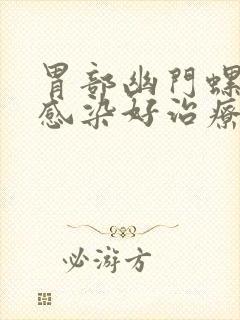 胃部幽門螺
感染好治療
必游方